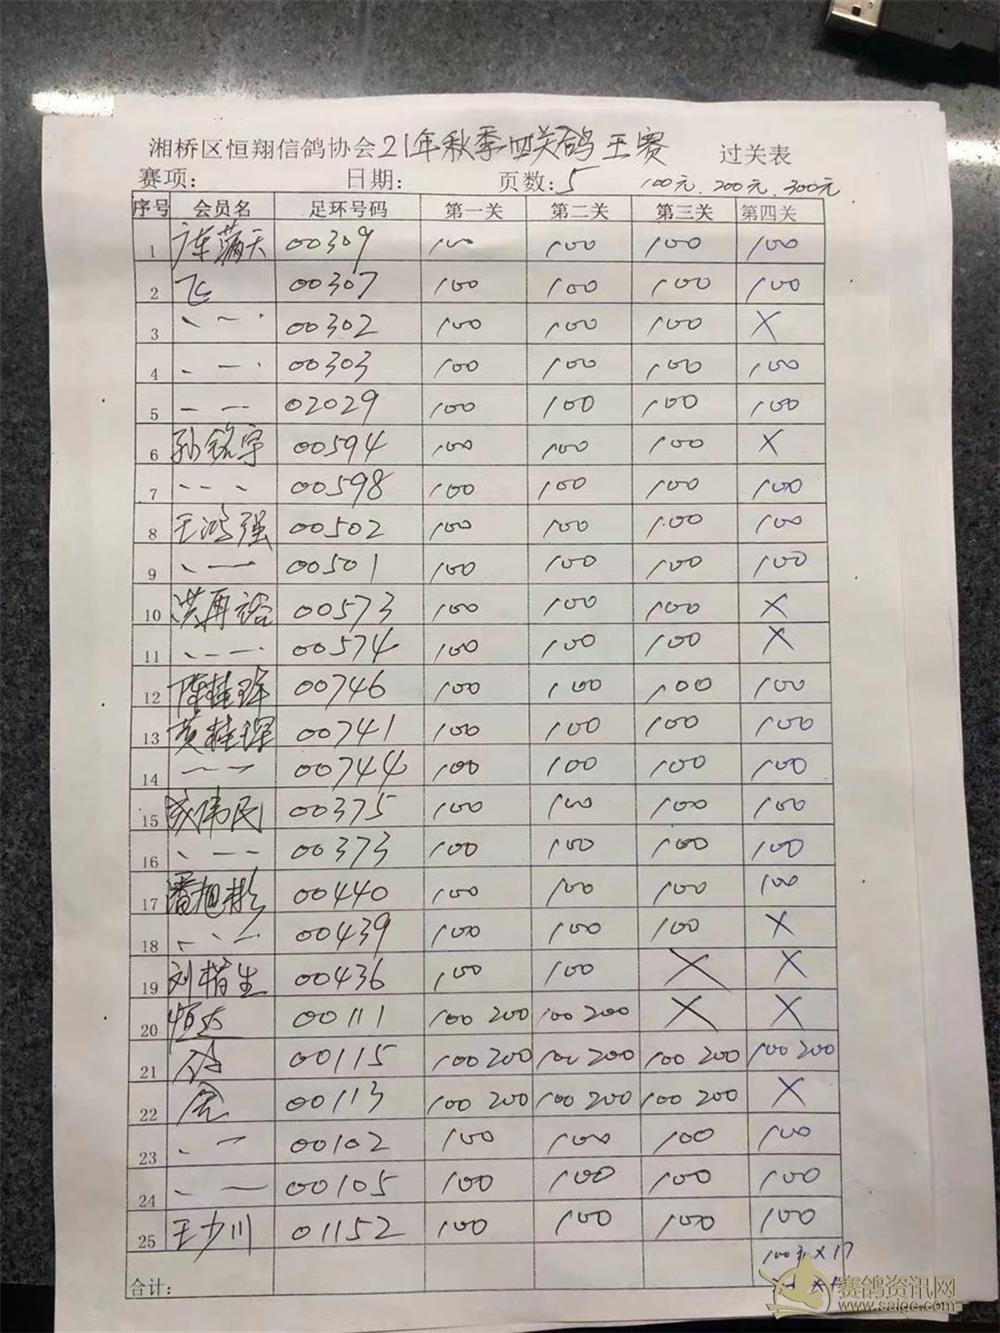 湘桥区恒翔信鸽协会21年秋季四关鸽王赛 过关表
赛项: 日期: 页数:5 100元.200元.300元
序号 会员名 足环号码 第一关 第二关 第三关 第四关
1 广东满天 00309 100 100 100 100
2 飞 00307 100 100 100 100
3 00302 100 100 100 X
4 00303 100 100 100 100
5 02029 100 100 100 100
6 孙铭宇 00594 100 100 100 X
7 00598 100 100 100 100
8 王鸿强 00502 100 100 100 100
9 00501 100 100 100 100
10 洪再裕 00573 100 100 100 X
11 00574 100 100 100 X
12 00746 100 100 100 100
13 00741 100 100 100 100
14 00744 100 100 100 100
15 伟民 00375 100 100 100 100
16 00373 100 100 100 100
17 潘旭彬 00440 100 100 100 100
18 00439 100 100 100 X
19 刘楷生 00436 100 100 X X
20 恒达 00111 100 200 100 200 X X
21 00115 100 200 100 200 100 200 100 200
22 00113 100 200 100 200 100 200 X
23 00102 100 100 100 100
24 00105 100 100 100 100
25 王少川 01152 100 100 100 100
100元X17
合计:
赛鸽资讯网
www.saige.com